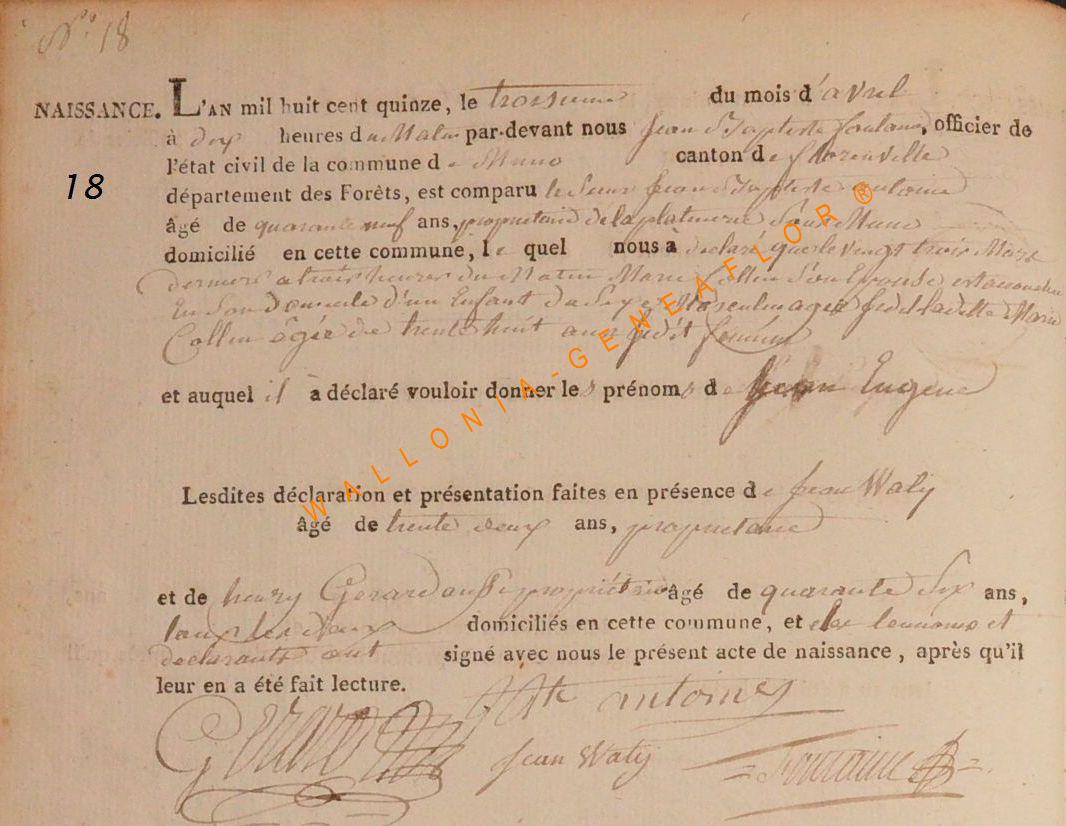 N° 18
NAISSANCE. L'AN mil huit cent quinze, le troisieme du mois d'avril
18
à dix heures du Matin par-devant nous Jean Baptiste fontaine, officier de
l'état civil de la commune de Muno canton de florenville
département des Forêts, est comparu le Sieur Jean Baptiste antoine
âgé de quarante neuf ans, proprietaire de la platinerie Sous Muno
domicilié en cette commune, le quel nous à déclaré que le vingt trois Mars
dernier a trois heures du Matin Marie Collin Son Epouse est accouchée
En Son Domicile d'un Enfant du Sexe Masculin ladite Marie
Collin âgée de trente huit ans
et auquel il à déclaré vouloir donner les prénoms de Jean Eugene
Lesdites déclaration et présentation faites en présence de Jean Waty
âgé de trente deux ans, proprietaire
et de henry Gerard aussi propriétaire âgé de quarante Six ans,
tous les deux domiciliés en cette commune, et les temoins et
declarants ont signé avec nous le présent acte de naissance, après qu'il
leur en a été fait lecture.
Gerard Bte antoine
Jean Waty fontaine
WALLONIA-GENEAFLOR ®